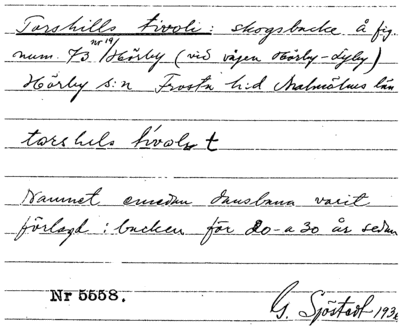 Torshills tivoli: skogsbacke å fig.
nr 19/
num. 73 Hörby (vid vägen Hörby-Lyby)
Hörby s:n Frosta h:d Malmöhus län
torshels tivolı t
Namnet emedan dansbana varit
förlagd i backen för 20 à 30 år sedan
Nr 5558.
G. Sjöstedt 193